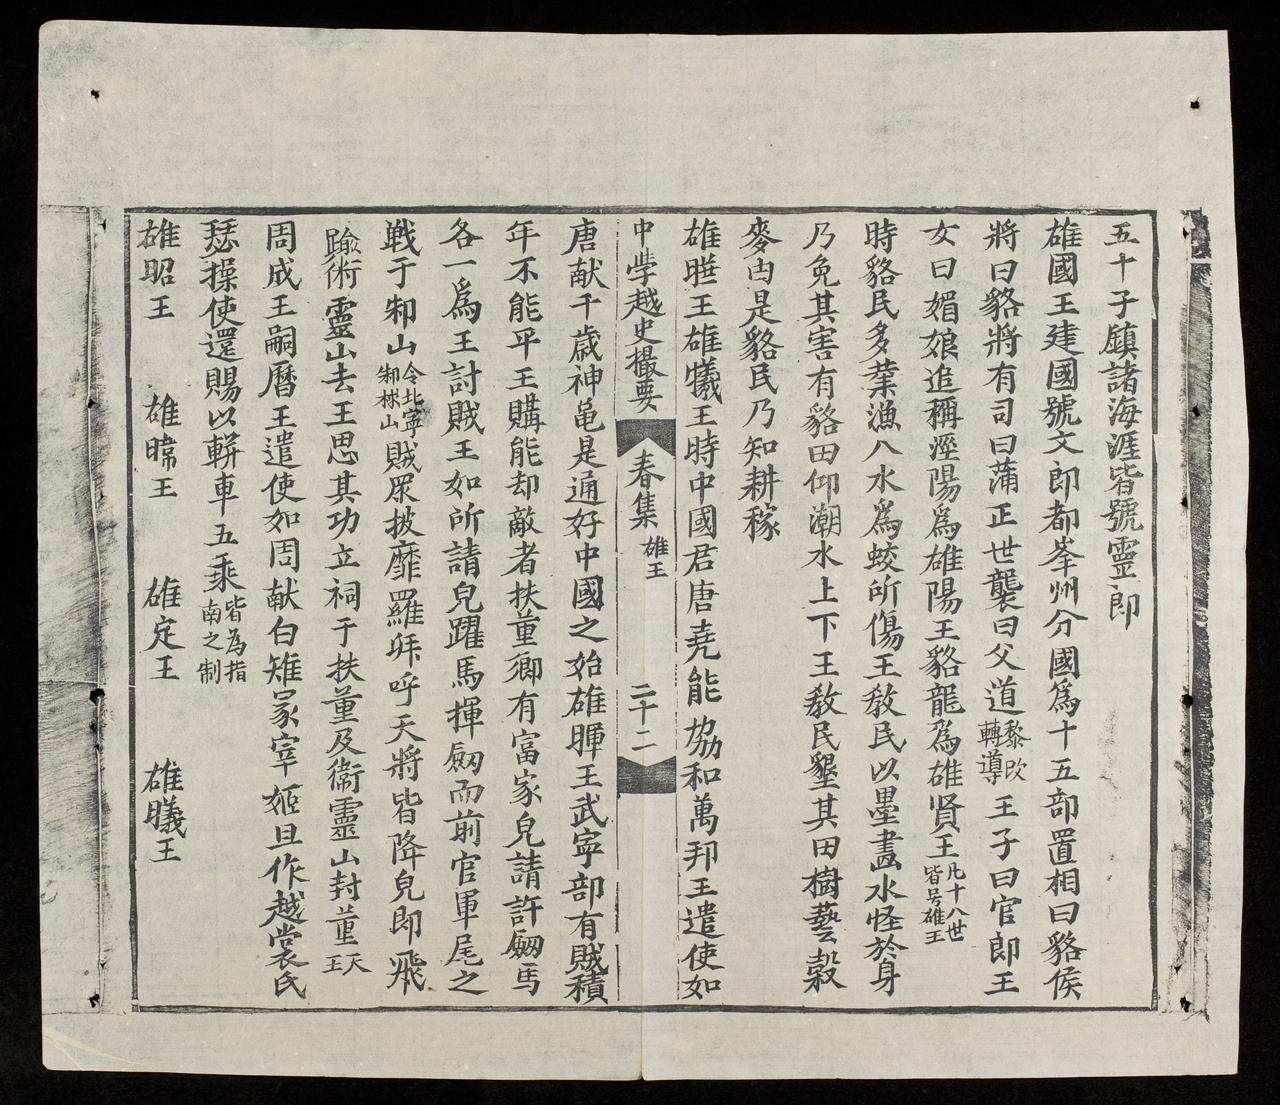 五十子鎮諸海涯皆號靈郎
雄國王建國號文郎都峯州分國爲十五部置相曰貉侯
將曰貉將有司曰蒲正世襲曰父道黎改轉導王子曰官郎王
女曰媚娘追稱涇陽爲雄陽王貉龍爲雄賢王凡十八世皆号雄王
時貉民多葉漁八水爲蛟所傷王敎民以墨畵水怪於身
乃免其害有貉田仰潮水上下王敎民墾其田樹藝榖
麥由是貉民乃知耕稼
雄㬏王雄犧王時中國君唐堯能協和萬邦王遣使如
中學越史撮要
春集
雄王
二十二
唐献千歲神亀是通好中國之始雄暉王武寧部有賊積
年不能平王購能却敵者扶董鄉有富家兒請許劒馬
各一爲王討賊王如所請兒躍馬揮劒而前官軍尾之
戦于郲山令北寧郲林山賊眾披靡羅拜呼天將皆降兒即飛
踰術靈山去王思其功立祠于扶董及衞靈山封董天王
周成王嗣曆王遣使如周献白雉冡宰姬旦作越裳氏
瑟操使還賜以軿車五乘皆為指南之制
雄昭王
雄暐王
雄定王
雄曦王